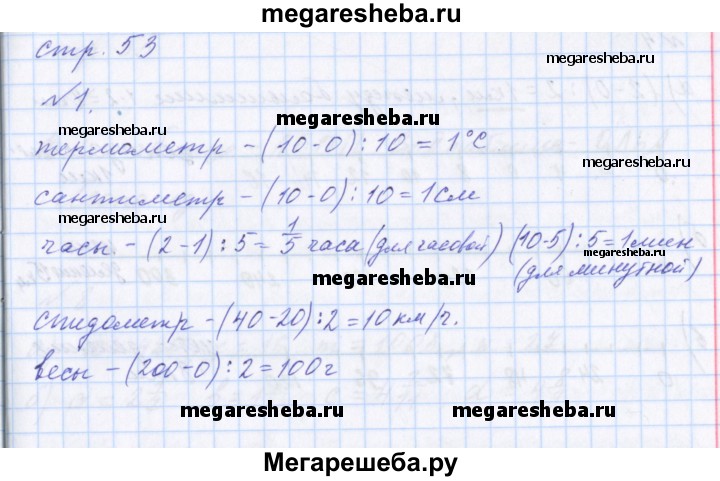 megaresheba.ru
стр. 53
megaresheba.ru megaresheba.ru
№1.
megaresheba.ru megaresheba.ru
термометр - (10-0):10 = 1°С
megaresheba.ru
сантиметр - (10-0):10 = 1см
megaresheba.ru
часы. - (2-1):5 = 1/5 часа (для часовой) (10-5):5 = 1мин
megaresheba.ru megaresheba.ru (для минутной)
спидометр - (40-20):2 = 10 км/ч.
megaresheba.ru
весы - (200-0):2 = 100г
megaresheba.ru megaresheba.ru
Мегарешеба.ру